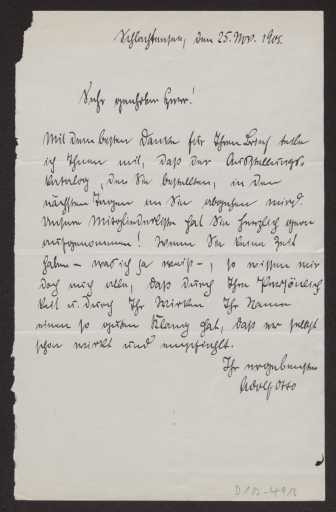 Schlachtensee, den 25. Nov. 1905.
Sehr geehrter Herr!
Mit dem besten Danke für Ihren Brief teile
ich Ihnen mit, daß der Ausstellungs-
katalog, den Sie bestellten, in den
nächsten Tagen an Sie abgehen wird.
Unsere Mitgliederliste hat Sie herzlich gern
aufgenommen! Wenn Sie keine Zeit
haben – was ich ja weiß –, so wissen wir
doch auch alle, daß durch Ihre Persönlich
keit u. durch Ihr Wirken Ihr Name
einen so guten Klang hat, daß er selbst
schon wirkt und empfiehlt.
Ihr ergebenster
Adolf Otto